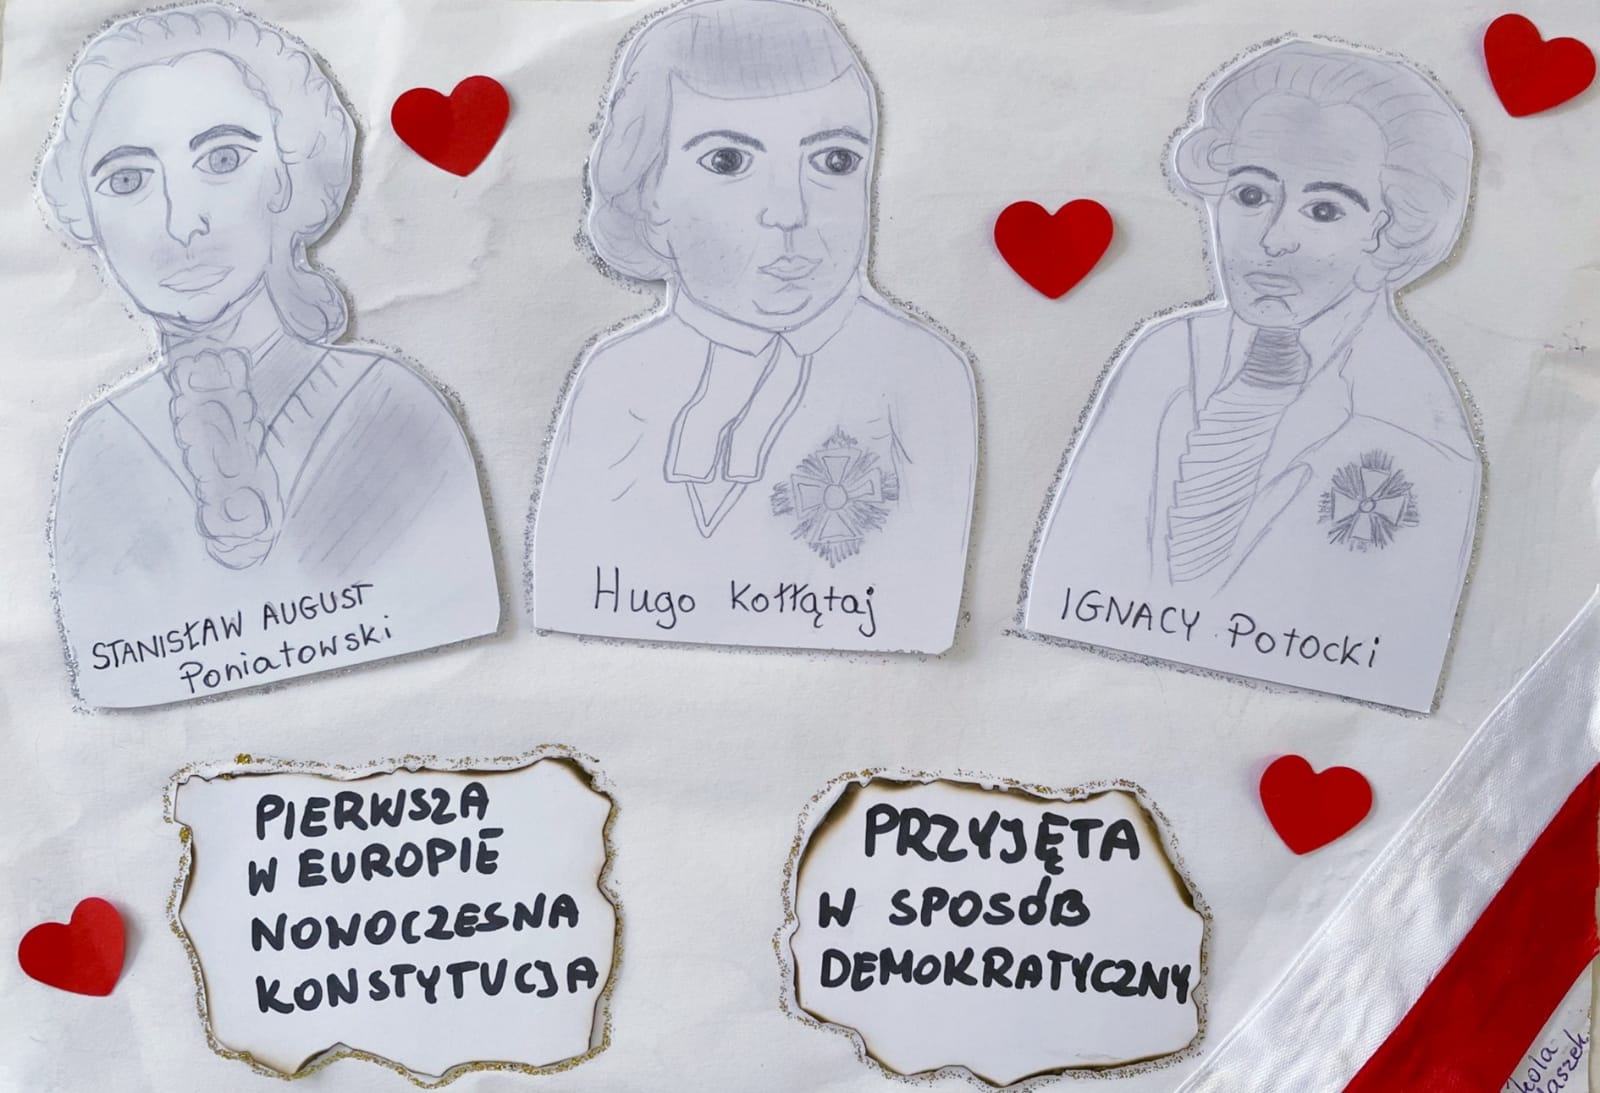 STANISŁAW AUGUST
Poniatowski
Hugo Kołłątaj
IGNACY Potocki
PIERWSZA
W EUROPIE
NOWOCZESNA
KONSTYTUCJA
PRZYJĘTA
W SPOSÓB
DEMOKRATYCZNY